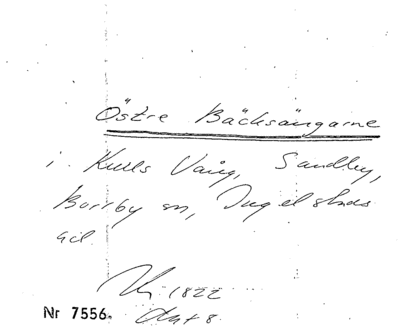 Östre Bäcksängarne
i Kulls Vång, Sandby,
Borrby sn, Ingelstads
1822
Nr 7556.
Akt 8